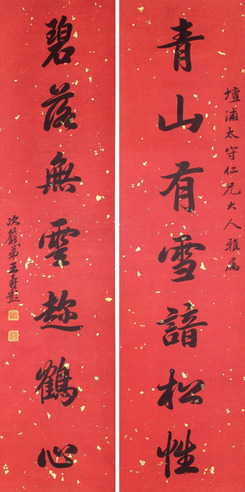 壇浦太守仁兄大人雅屬
青山有雪諳松性
碧落無雲趁鶴心
次籛弟王